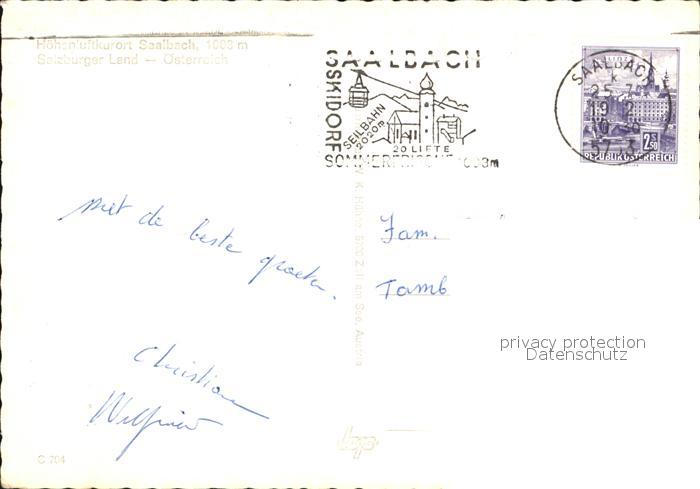 Höhenluftkurort Saalbach, 1003 m
Salzburger Land — Österreich
SAALBACH
SKIDORF
SEILBAHN
2020m
20 LIFTE
SOMMERFRISCHE 1003m
SAALBACH
25.7.
19
5753
LINZ
2 S 50
REPUBLIK ÖSTERREICH
met de beste groeten.
Christian
Wilfried
Fam.
Tamb
privacy protection
Datenschutz
C 704